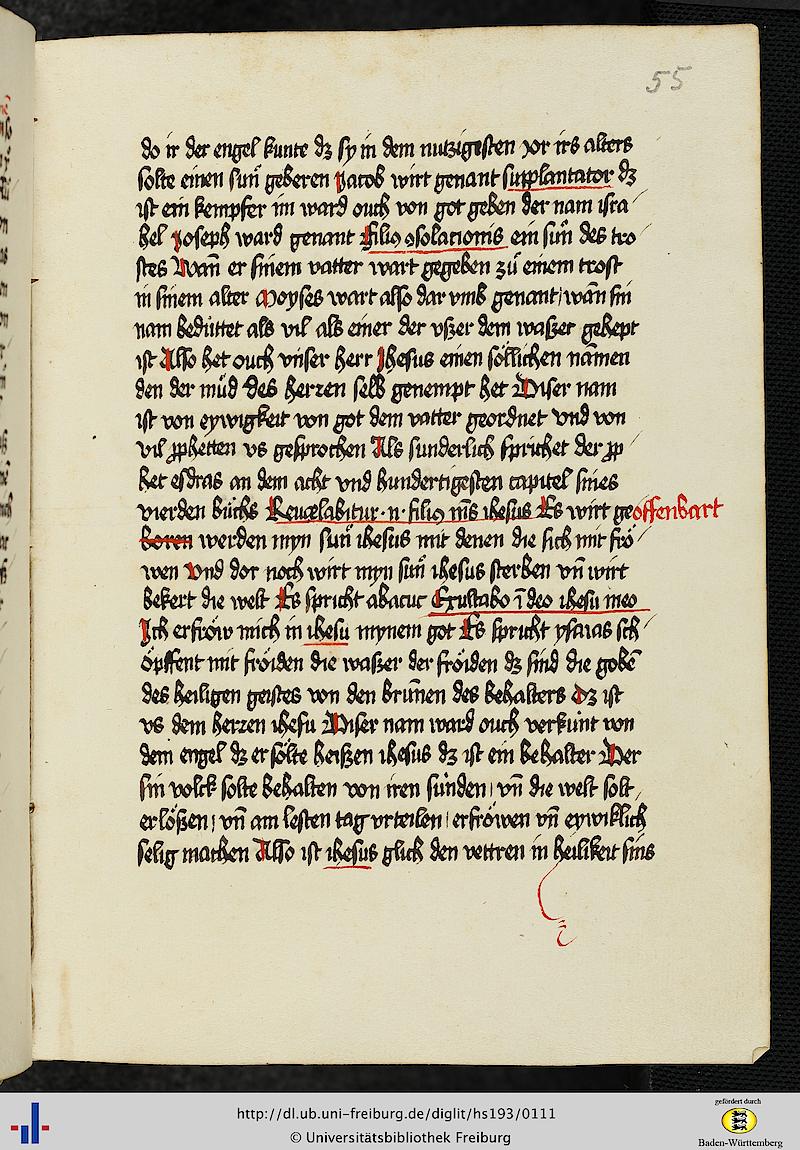 55
do ir der engel kunte dz sy in dem nutzigesten Jor irs alters
solte einen sun̄ geberen Jacob wirt genant supplantator dz
ist ein kempfer im ward ouch von got geben der nam isra
hel Joseph ward genant filiꝯ ꝯsolacionis ein sun̄ des tro
stes Wan̄ er sinem vatter wart gegeben zů einem trost
in sinem alter Moyses wart also dar vmb genant wan̄ sin
nam bedüttet als vil als einer der vszer dem waszer gehept
ist Also het ouch vnser herr Jhesus einen söllichen nāmen
den der můd des herren selb genempt het Diser nam
ist von eywigkeit von got dem vatter geordnet vnd von
vil ꝓphetten vs gesprochen Als sunderlich sprichet der ꝓ
het esdras an dem acht vnd hundertigesten capitel sines
vierden bůchs Reuelabitur · n · filiꝯ mꝰs ihesus Es wirt geoffenbart
boren werden myn sun̄ ihesus mit denen die sich mit frö
wen vnd dor noch wirt myn sun̄ ihesus sterben vn̄ wirt
bekert die welt Es spricht abacuc Exultabo ī deo ihesu meo
Ich erfröw mich in ihesu mynem got Es spricht ysaias sch
öpffent mit fröiden die waszer der fröiden dz sind die gobē
des heiligen geistes von den brun̄nen des behalters dz ist
vs dem herzen ihesu Diser nam ward ouch verkünt von
dem engel dz er sölte heiszen ihesus dz ist ein behalter Der
sin volck solte behalten von iren sünden vn̄ die welt solt
erlöszen vn̄ am lesten tag vrteilen erfröwen vn̄ eywiklich
selig machen Also ist ihesus glich den vettren in heilikeit sins
http://dl.ub.uni-freiburg.de/diglit/hs193/0111
© Universitätsbibliothek Freiburg
gefördert durch
Baden-Württemberg